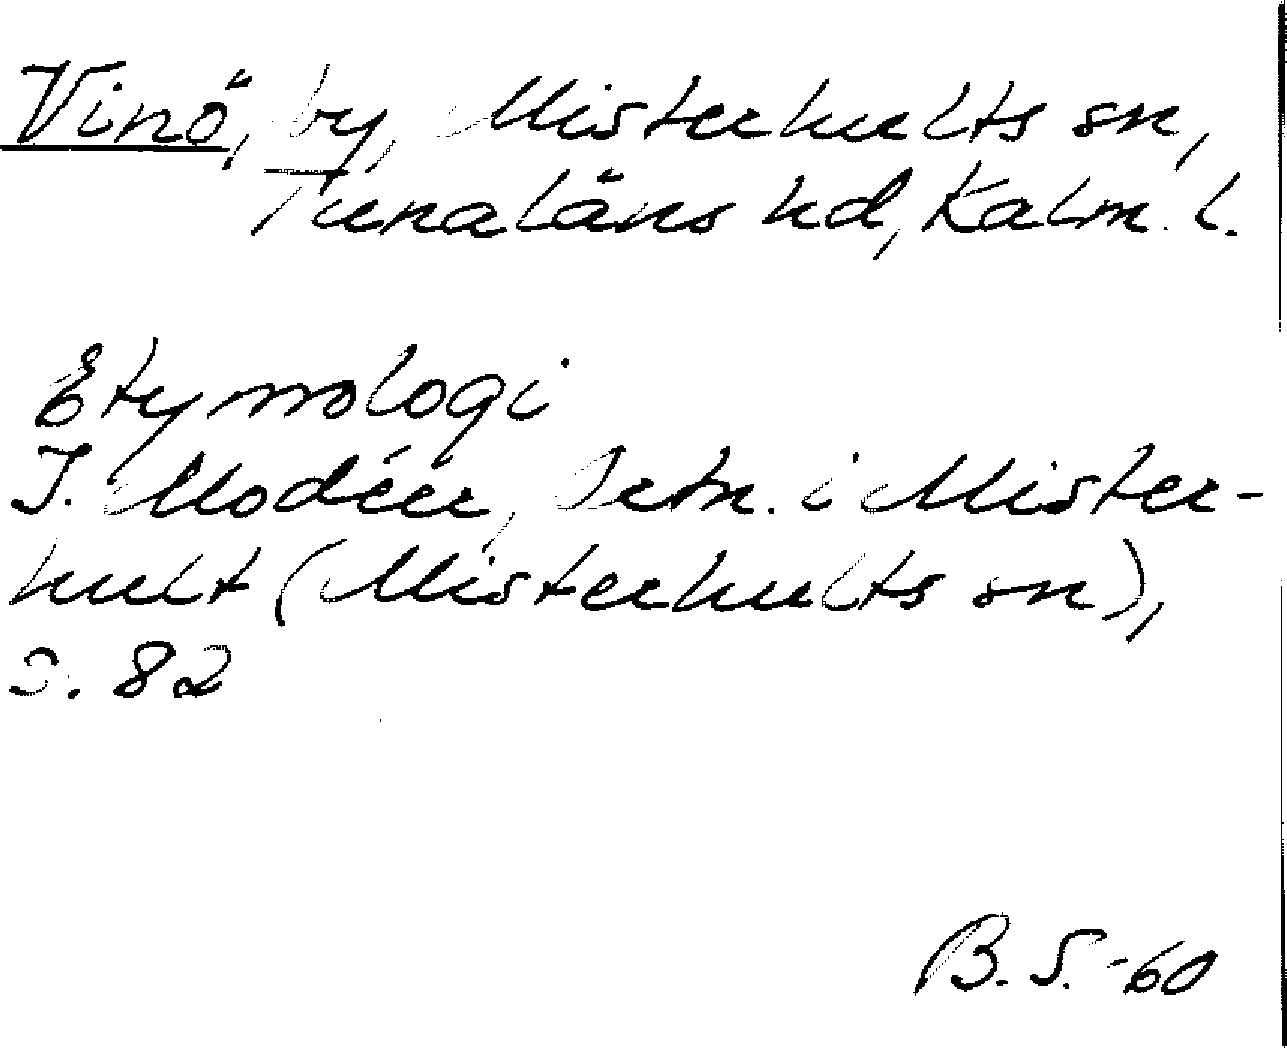 Vinö, by, Misterhults sn,
Tunaläns hd, Kalm. l.
Etymologi
I. Modéer, Ortn. i Mister-
hult (Misterhults sn),
s. 82
B. S. -60